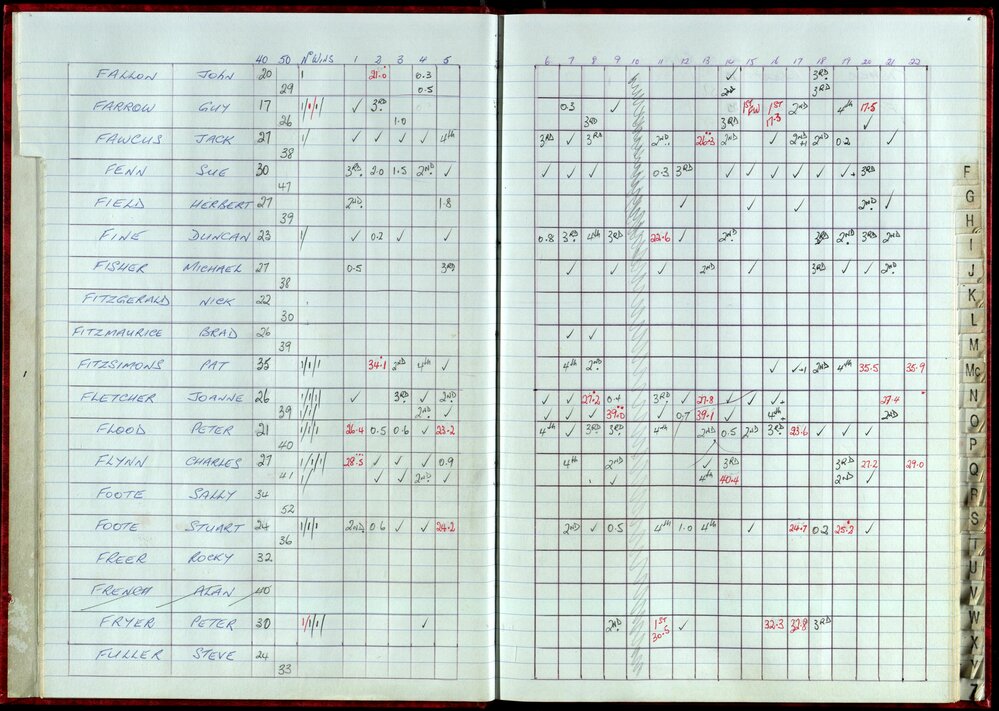 40 50 Nº WINS 1 2 3 4 5 6 7 8 9 10 11 12 13 14 15 16 17 18 19 20 21 22
FALLON JOHN 20 21.0 0.3 ✓ 3RD
29 0.5 2nd 3RD
FARROW GUY 17 ✓ 3RD 0.3 ✓ 1ST 1ST 2ND 4th 17.5
26 1.0 3RD 3RD 17.3 ✓
FAWCUS JACK 27 ✓ ✓ ✓ ✓ 4th 3RD ✓ 3RD 2ND 26.3 2ND ✓ 2ND 2ND 0.2 ✓
38
FENN SUE 30 3RD 2.0 1.5 2ND ✓ ✓ ✓ ✓ 0.3 3RD ✓ ✓ ✓ ✓ ✓ ✓ ✓+ 3RD
47
FIELD HERBERT 27 2ND 1.8 ✓ ✓ ✓ 2ND ✓
39
FINE DUNCAN 23 ✓ 0.2 ✓ ✓ 0.8 3RD 4th 3RD 22.6 ✓ 2ND 3RD 2ND 3RD 2ND
FISHER MICHAEL 27 0.5 3RD ✓ ✓ ✓ 2ND ✓ 3RD ✓ ✓ 2ND
38
FITZGERALD NICK 22
30
FITZMAURICE BRAD 26 ✓ ✓
39
FITZSIMONS PAT 35 34.1 2RD 4th ✓ 4th 2ND ✓ ✓+1 2ND 4th 35.5 35.9
FLETCHER JOANNE 26 ✓ 3RD ✓ 2ND ✓ ✓ 27.2 0.4 3RD ✓ 27.8 ✓ ✓ ✓+ 27.4
39 2ND ✓ ✓ ✓ ✓ 39.0 ✓ 0.7 39.1 ✓ 4th+ 2ND
FLOOD PETER 21 26.4 0.5 0.6 ✓ 23.2 4th ✓ 3RD 3RD 4th 2ND 0.5 2ND 3RD 23.6 ✓ ✓ ✓
40
FLYNN CHARLES 27 28.5 ✓ ✓ ✓ 0.9 4th 2ND ✓ 3RD 3RD 27.2 29.0
41 ✓ ✓ 2ND ✓ ✓ 4th 40.4 2ND ✓
FOOTE SALLY 34
52
FOOTE STUART 24 2ND 0.6 ✓ ✓ 24.2 2ND ✓ 0.5 4th 1.0 4th ✓ 24.7 0.2 25.2 ✓
36
FREER ROCKY 32
FRENCH ALAN 40
FRYER PETER 30 ✓ 2ND 1ST ✓ 32.3 32.8 3RD
30.5
FULLER STEVE 24
33
F
G
H
I
J
K
L
M
Mc
N
O
P
Q
R
S
T
U
V
W
X
Y
Z